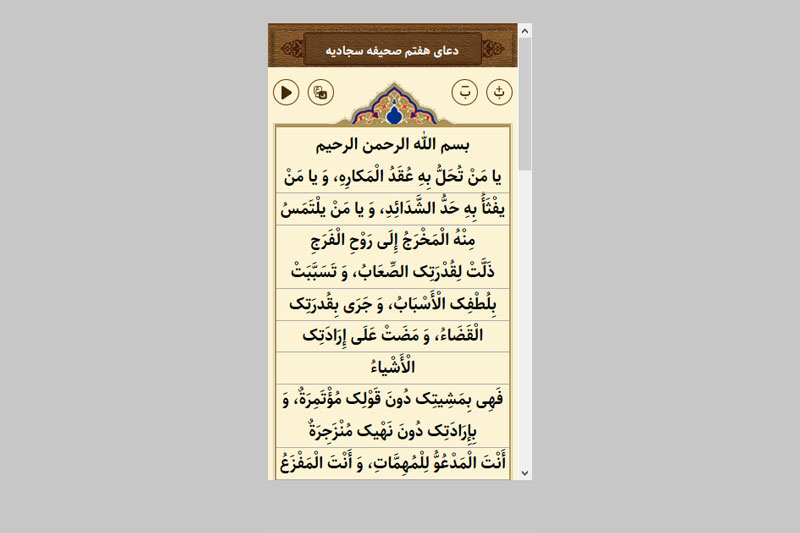 دعای هفتم صحیفه سجادیه
بسم الله الرحمن الرحیم
یا مَنْ تُحَلُّ بِهِ عُقَدُ الْمَكارِهِ، وَ یا مَنْ
یفْثَأُ بِهِ حَدُّ الشَّدَائِدِ، وَ یا مَنْ یلْتَمَسُ
مِنْهُ الْمَخْرَجُ إِلَى رَوْحِ الْفَرَجِ
ذَلَّتْ لِقُدْرَتِک الصِّعَابُ، وَ تَسَبَّبَتْ
بِلُطْفِک الْأَسْبَابُ، وَ جَرَى بِقُدرَتِک
الْقَضَاءُ، وَ مَضَتْ عَلَى إِرَادَتِک
الْأَشْیاءُ
فَهِی بِمَشِیتِک دُونَ قَوْلِک مُؤْتَمِرَةٌ، وَ
بِإِرَادَتِک دُونَ نَهْیک مُنْزَجِرَةٌ
أَنْتَ الْمَدْعُوُّ لِلْمُهِمَّاتِ، وَ أَنْتَ الْمَفْزَعُ